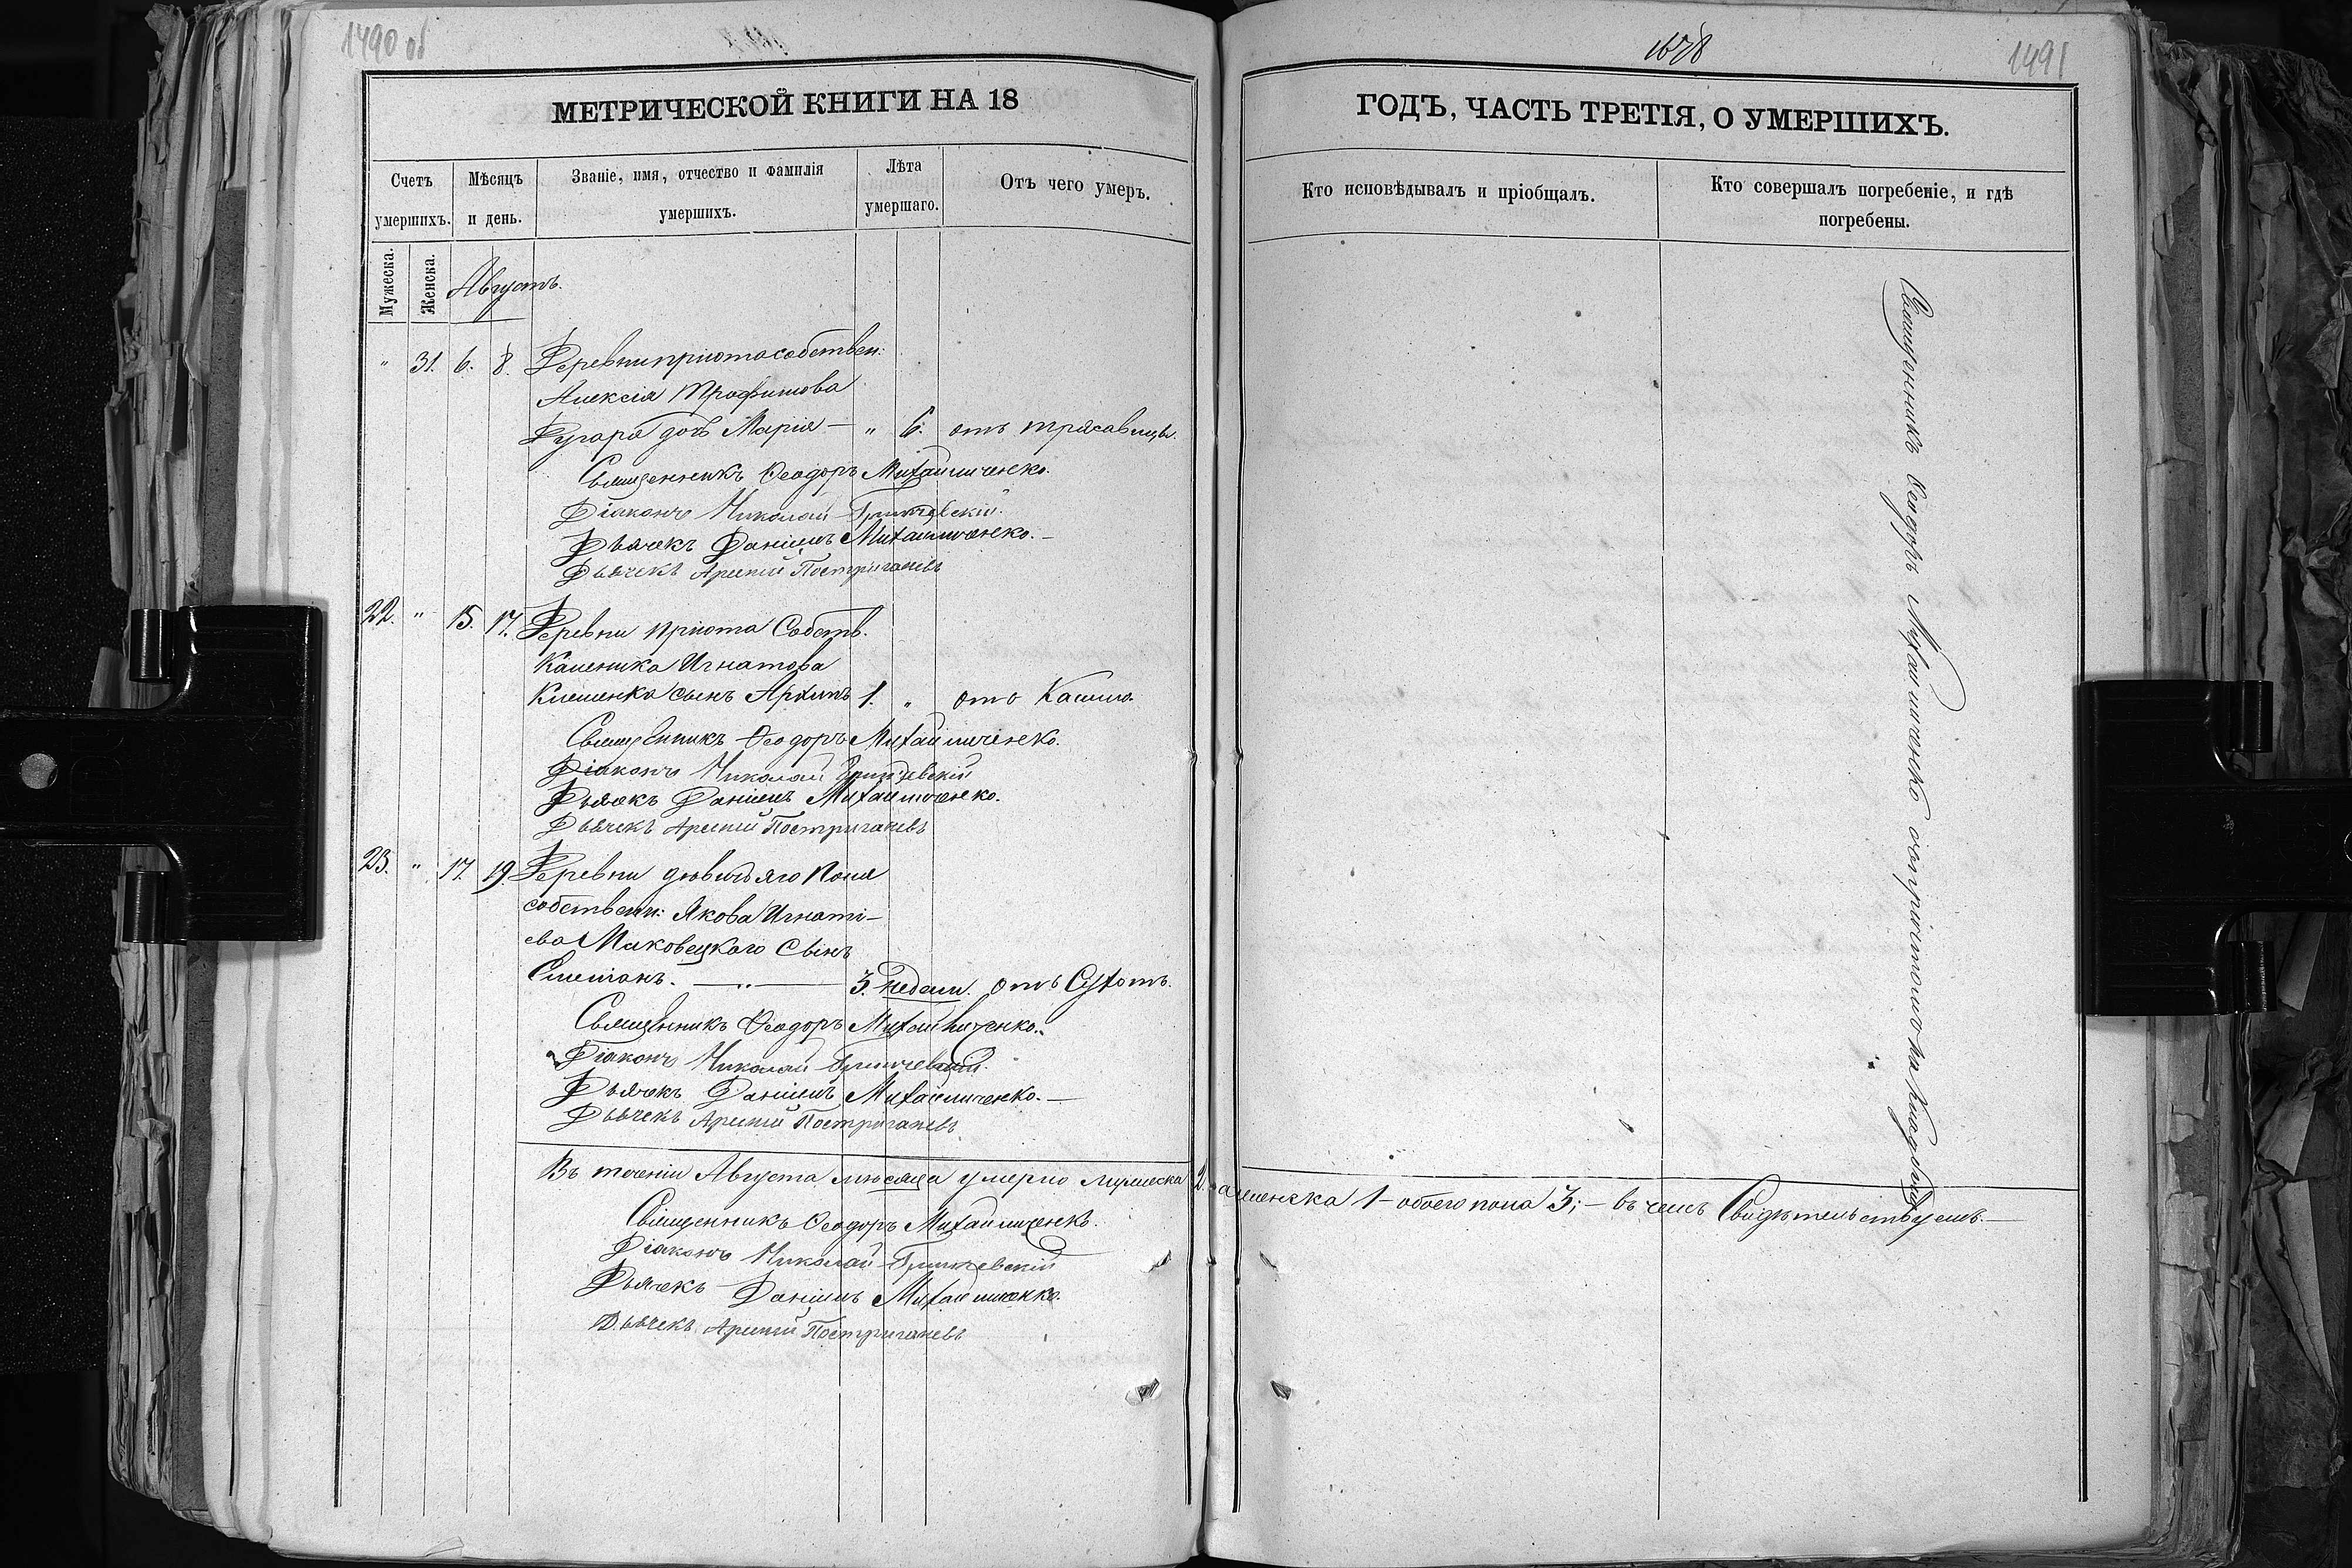 1490 об
МЕТРИЧЕСКОЙ КНИГИ НА 18
Счетъ умершихъ.
Мѣсяцъ и день.
Званіе, имя, отчество и фамилія умершихъ.
Лѣта умершаго.
Отъ чего умеръ.
Мужеска.
Женска.
Августъ.
" 31. 6. 8. Деревни пріюта собствен:
Алексія Трофимова
дочь Марія — " 6. отъ трясавицы.
Священникъ Ѳеодоръ Михайличенко.
Діаконъ Николай
Дьячекъ Даніилъ Михайличенко. —
Дьячекъ Арсеній Постригачевъ
22. " 15. 17. Деревни пріюта Собств.
Каленика Игнатова
Клименка сынъ Архипъ 1. " отъ Кашлю.
Священникъ Ѳеодоръ Михайличенко.
Діаконъ Николай
Дьячекъ Даніилъ Михайличенко.
Дьячекъ Арсеній Постригачевъ
23. " 17. 19. Деревни дѣвичьяго Поля
собственн: Якова Игнаті-
ева Маковецкаго Сынъ
Симеонъ. — " — 3. недели. отъ Сухотъ.
Священникъ Ѳеодоръ Михайличенко.
Діаконъ Николай
Дьячекъ Даніилъ Михайличенко. —
Дьячекъ Арсеній Постригачевъ
Въ теченіи Августа мѣсяца умерло мужеска 2. а женска 1 — обоего пола 3; — въ чемъ Свидѣтельствуемъ. —
Священникъ Ѳеодоръ Михайличенко.
Діаконъ Николай
Дьячекъ Даніилъ Михайличенко.
Дьячекъ Арсеній Постригачевъ
1878
1491
ГОДЪ, ЧАСТЬ ТРЕТІЯ, О УМЕРШИХЪ.
Кто исповѣдывалъ и пріобщалъ.
Кто совершалъ погребеніе, и гдѣ погребены.
Священникъ Ѳеодоръ Михайличенко съ причтомъ на кладбищѣ